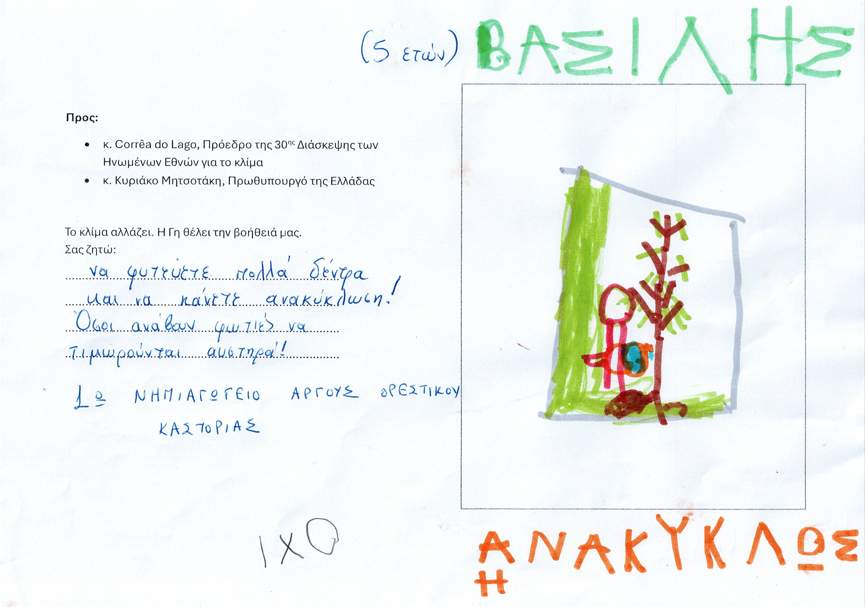 (5 ετών) ΒΑΣΙΛΗΣ
Προς:
• κ. Corrêa do Lago, Πρόεδρο της 30ης Διάσκεψης των
Ηνωμένων Εθνών για το κλίμα
• κ. Κυριάκο Μητσοτάκη, Πρωθυπουργό της Ελλάδας
Το κλίμα αλλάζει. Η Γη θέλει την βοήθειά μας.
Σας ζητώ:
να φυτεύετε πολλά δέντρα
και να κάνετε ανακύκλωση!
Όσοι ανάβουν φωτιές να
τιμωρούνται αυστηρά!
1ο ΝΗΠΙΑΓΩΓΕΙΟ ΑΡΓΟΥΣ ΟΡΕΣΤΙΚΟΥ
ΚΑΣΤΟΡΙΑΣ
ΙΧΟ
ΑΝΑΚΥΚΛΩΣ
Η